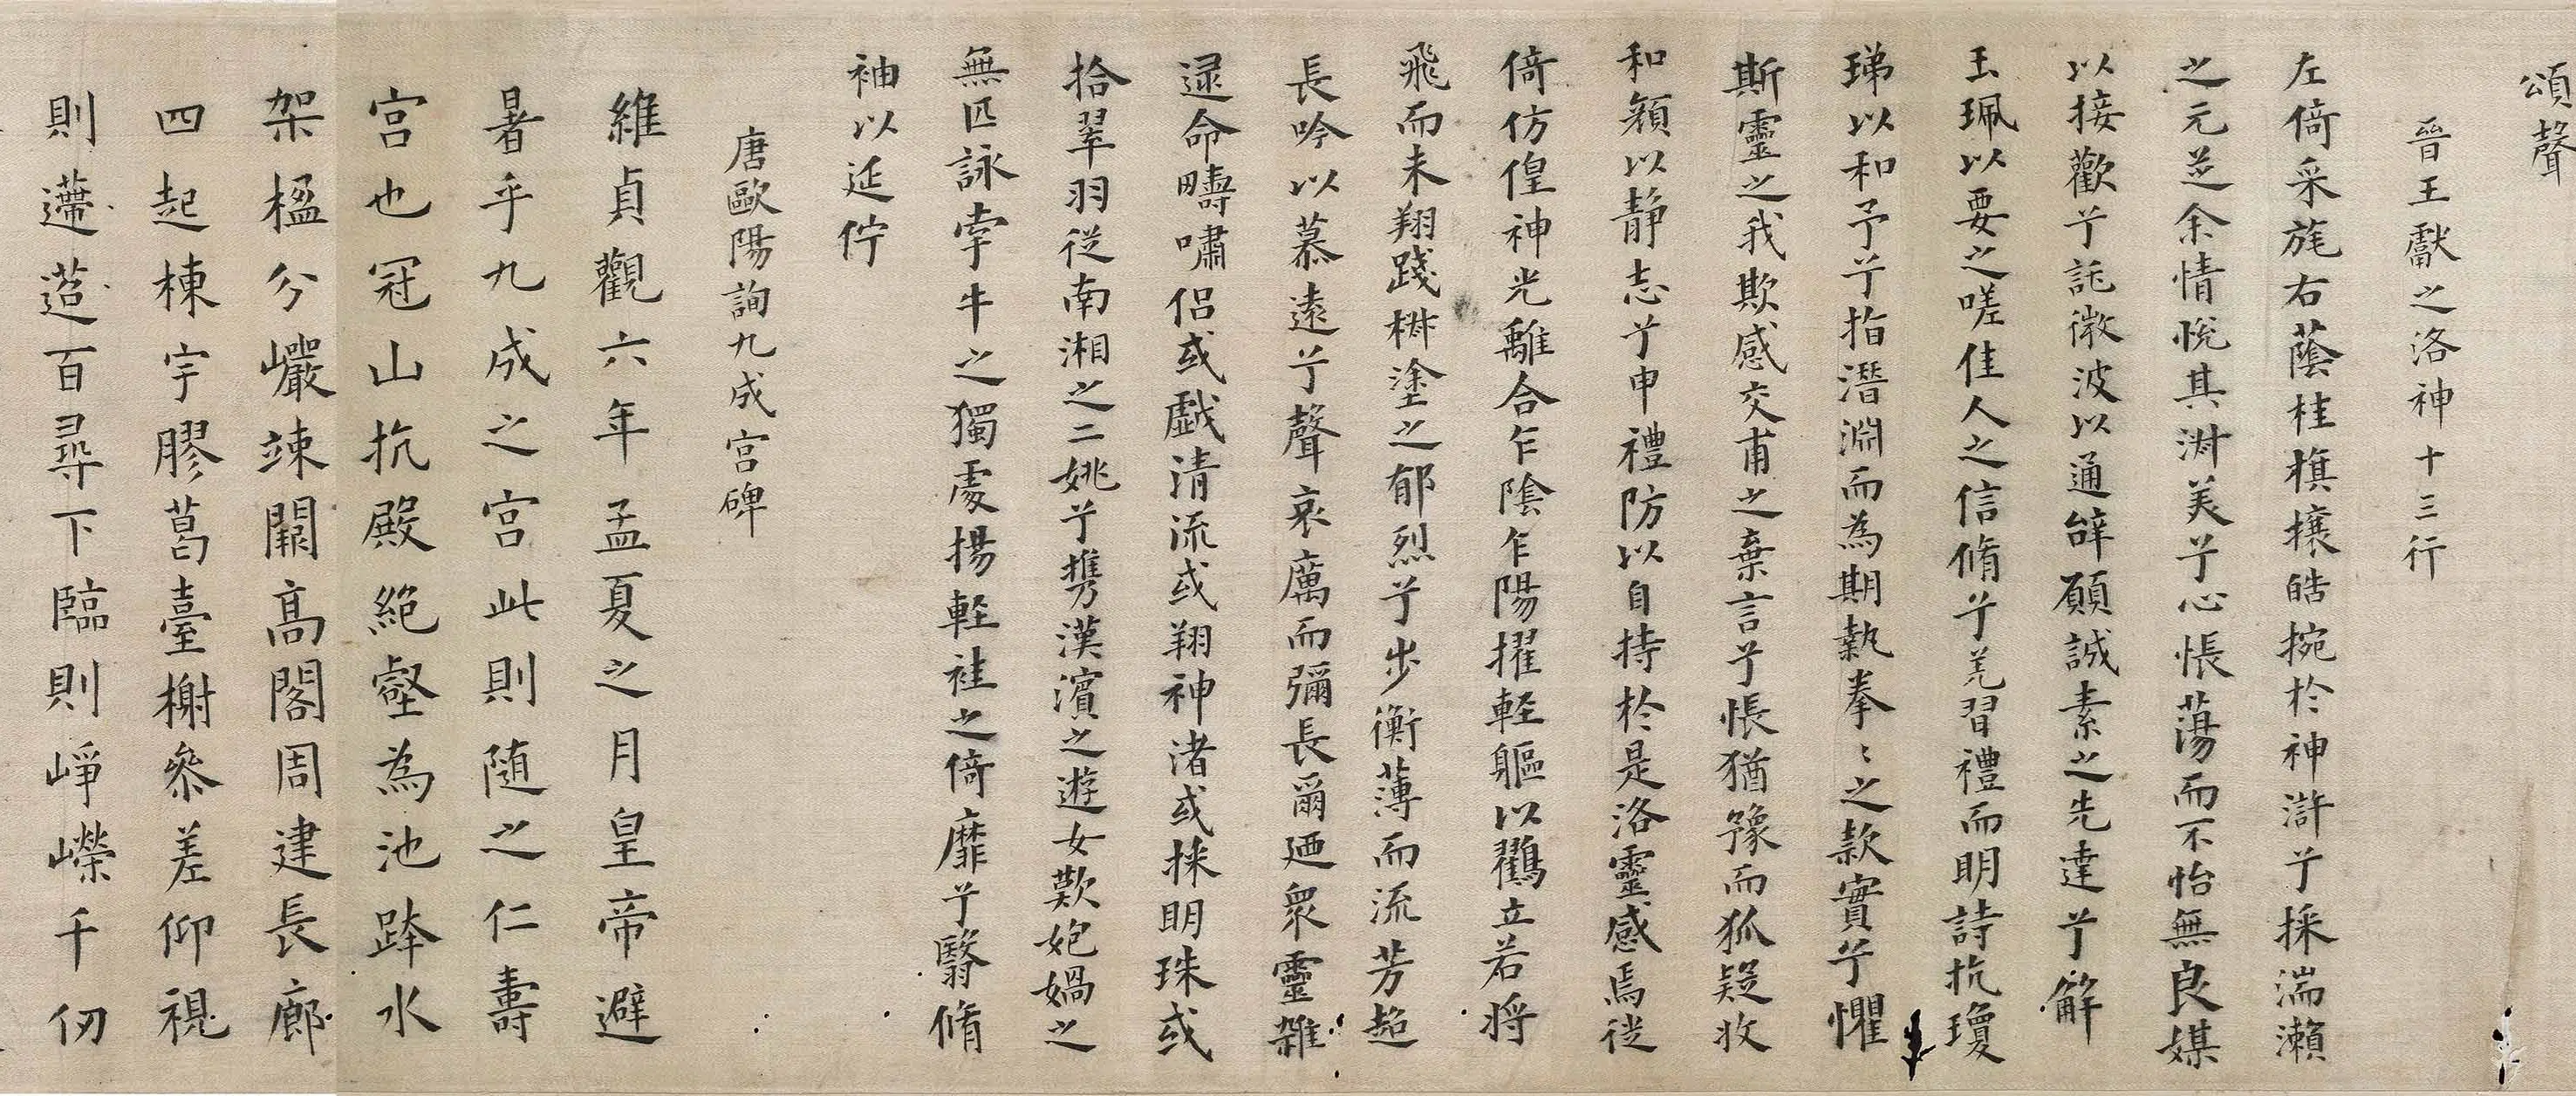 頌聲
晉王獻之洛神十三行
左倚采旄右蔭桂旗攘皓捥於神滸兮採湍瀨
之玄芝余情悅其淑美兮心悵蕩而不怡無良媒
以接歡兮託微波以通辭願誠素之先達兮解
玉珮以要之嗟佳人之信脩兮羌習禮而明詩抗瓊
珶以和予兮指潛淵而為期執拳〻之款實兮懼
斯靈之我欺感交甫之棄言兮悵猶豫而狐疑收
和顏以静志兮申禮防以自持於是洛靈感焉徙
倚仿偟神光離合乍陰乍陽擢軽軀以鶴立若将
飛而未翔踐椒塗之郁烈兮步衡薄而流芳超
長吟以慕遠兮聲哀厲而彌長爾廼衆靈雜
遝命疇嘯侣或戯清流或翔神渚或採明珠或
拾翠羽従南湘之二姚兮携漢濱之遊女歎匏媧之
無匹詠牽牛之獨處揚軽袿之倚靡兮翳脩
袖以延佇
唐歐陽詢九成宮碑
維貞觀六年孟夏之月皇帝避
暑乎九成之宮此則随之仁壽
宮也冠山抗殿絶壑為池跨水
架楹分巖竦闕高閣周建長廊
四起棟宇膠葛臺榭叅差仰視
則遰遰百尋下臨則崢嶸千仞